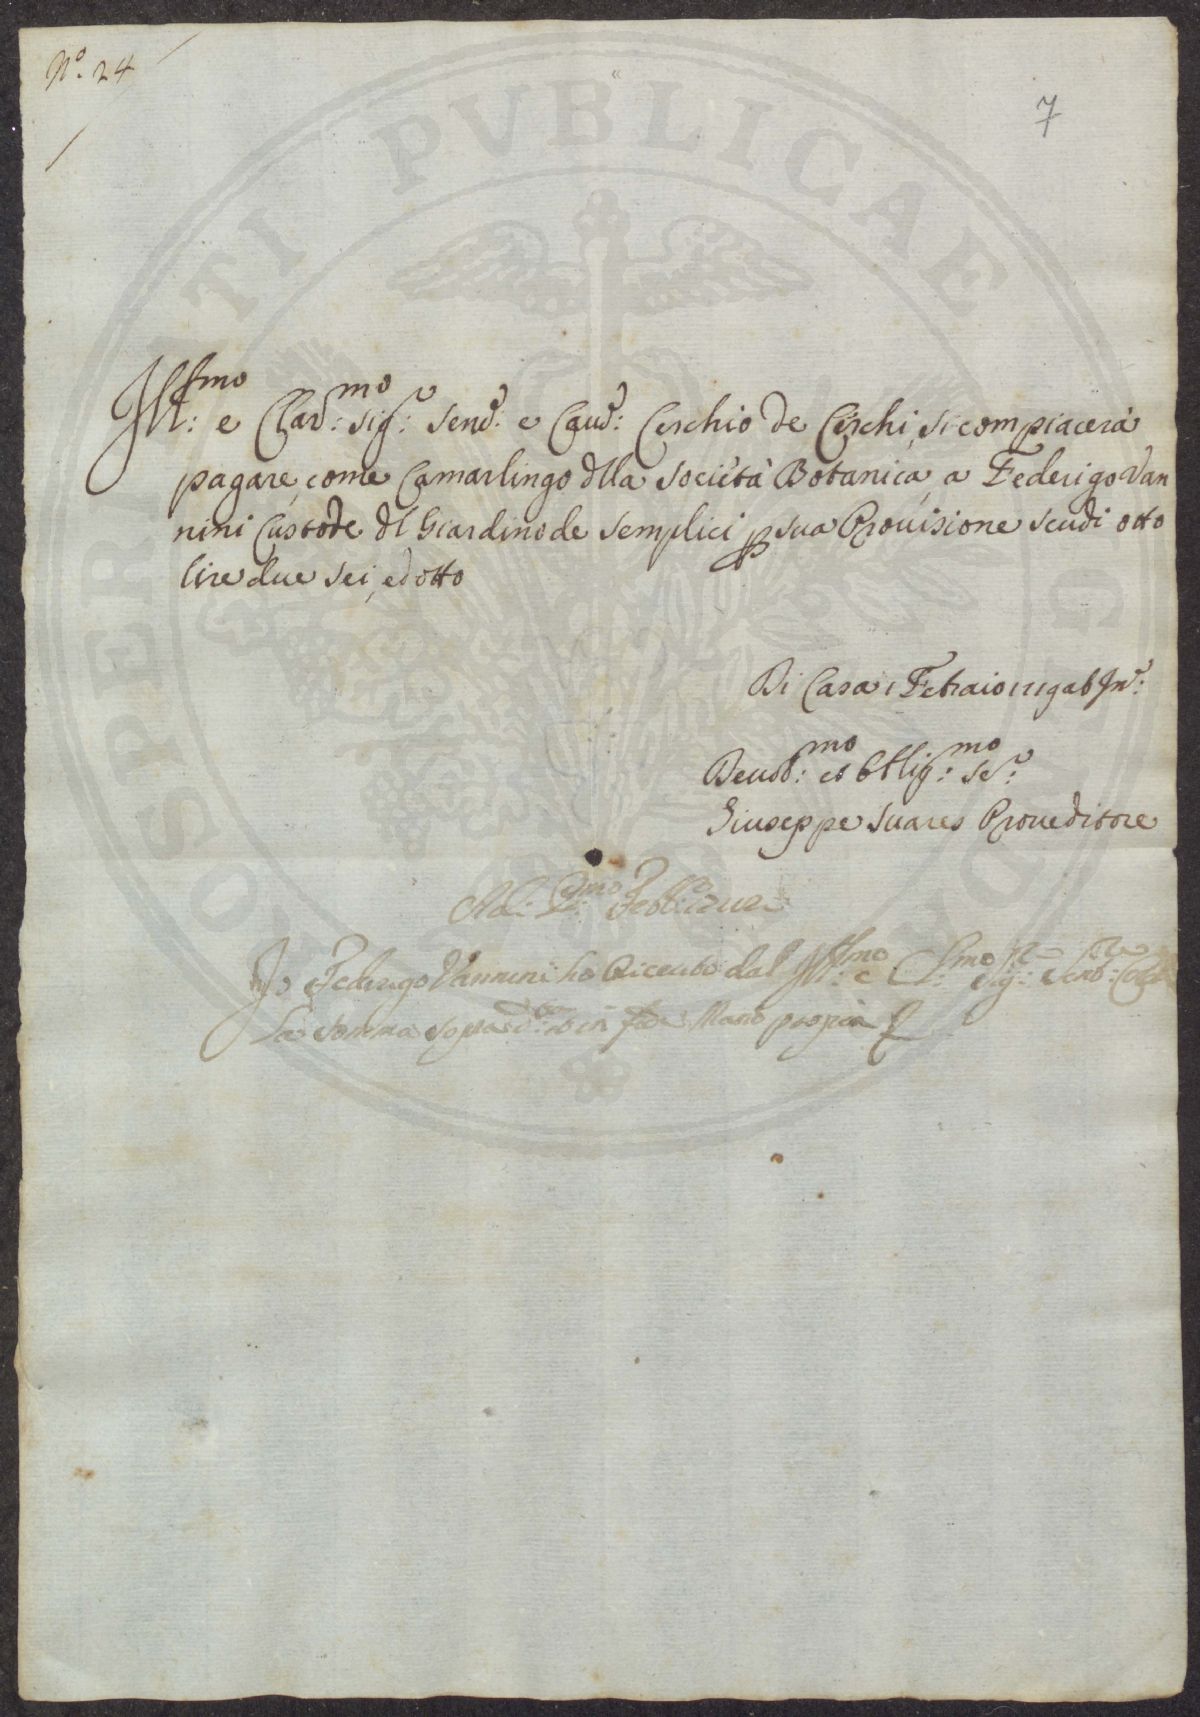 N.º 24
7
Ill:mo e Clar:mo Sig:r Sen:r e Cau:r Cerchio de Cerchi, si compiacerà
pagare, come Camarlingo dlla Società Botanica, a Federigo Van
nini Custode dl Giardino de Semplici p sua Prouisione scudi otto
lire due sei, ed otto
Di Casa 1 Febraio
Deuot:mo et Obblig:mo Se:r
Giuseppe Suares Proueditore
Adi P:mo Febb:o
Io Federigo Vannini ho Riceuto dal Ill:mo e C:mo Sig:re Senat:re
La somma sopra d:ta in fede Mano propria